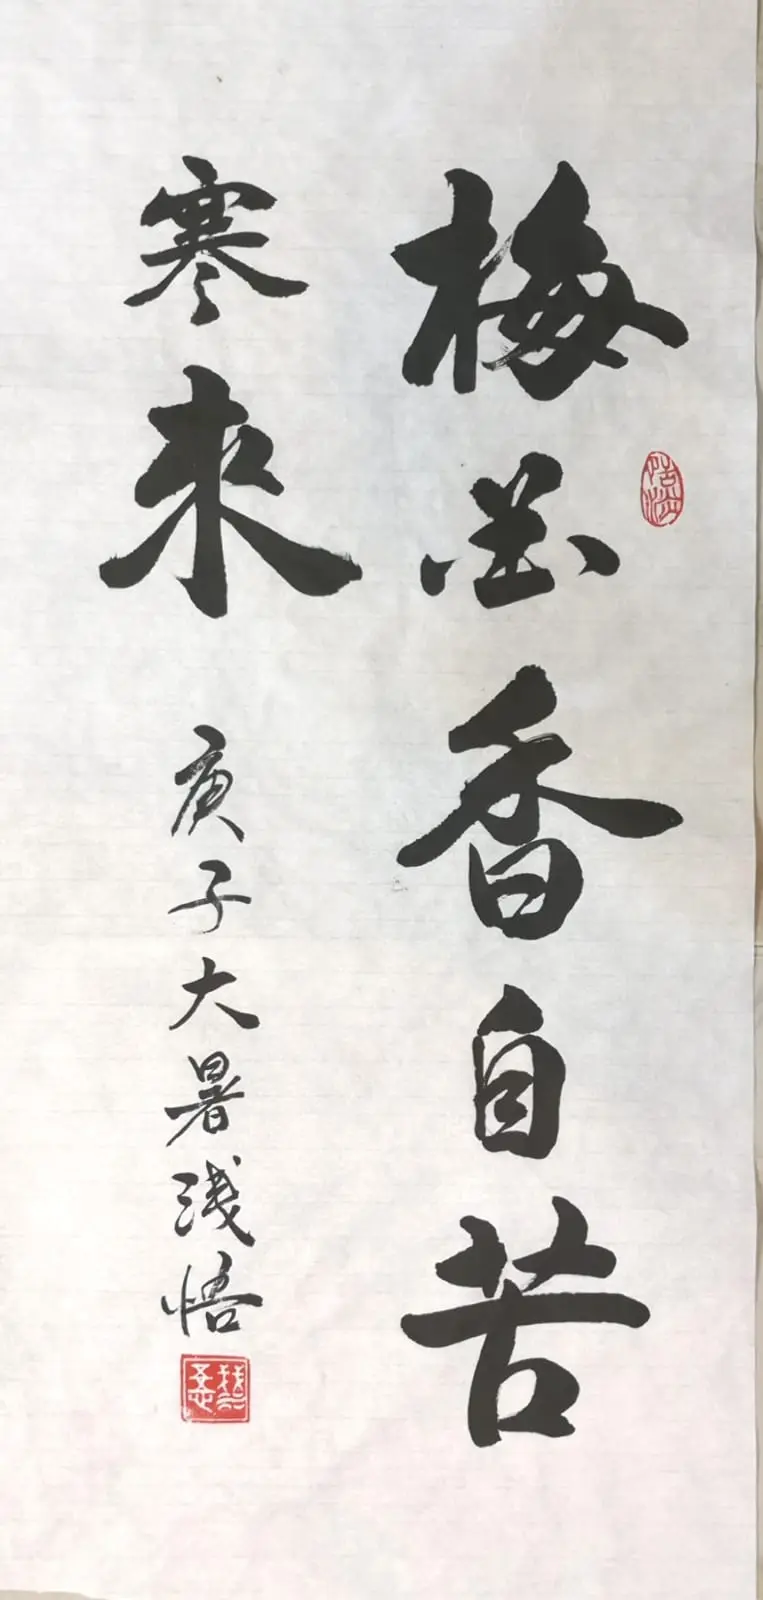 梅花香自苦
寒來 庚子大暑浅悟